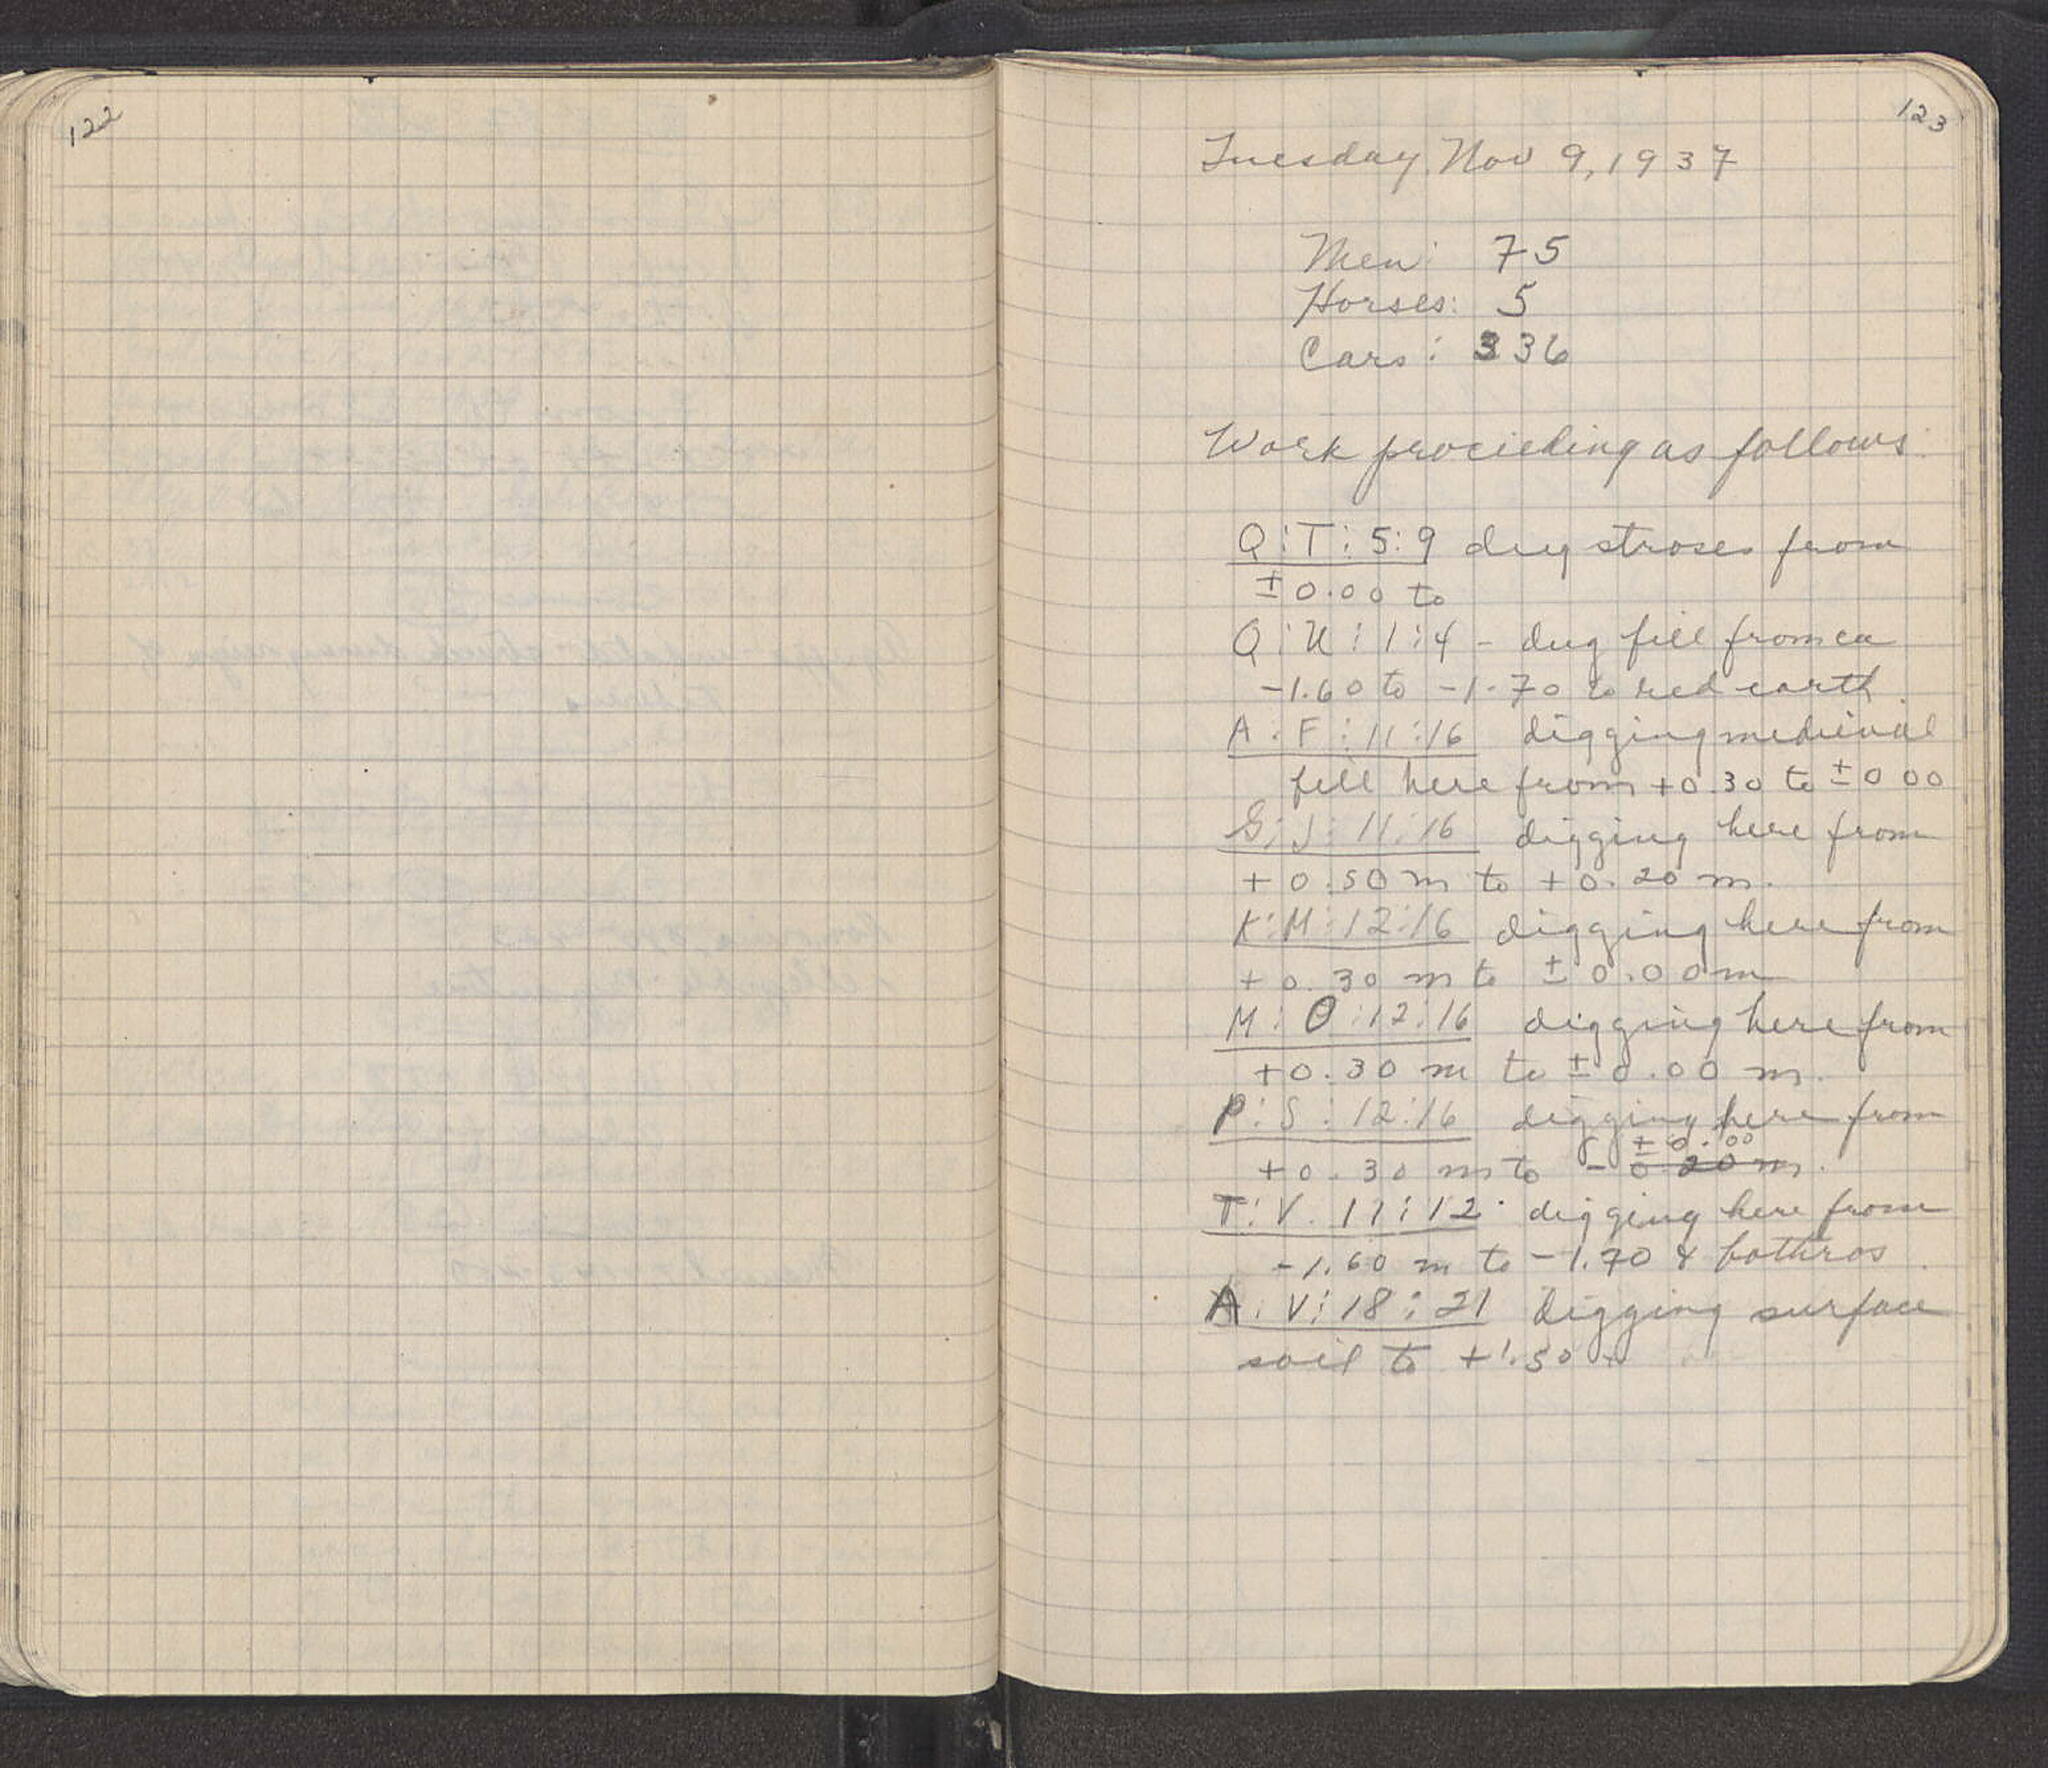 122
123
Tuesday, Nov 9, 1937
Men: 75
Horses: 5
Cars: 336
Work proceeding as follows:
Q:T:5:9 dug stroses from
±0.00 to
Q:U:1:4 - dug fill from ca
-1.60 to -1.70 to red earth.
A:F:11:16 digging medieval
fill here from +0.30 to ±0.00
G:J:11:16 digging here from
+0.50 m to +0.20 m.
K:M:12:16 digging here from
+0.30 m to ±0.00 m
M:O:12:16 digging here from
+0.30 m to ±0.00 m.
P:S:12:16 digging here from
±0.00
+0.30 m to -0.20 m.
T:V.11:12. digging here from
-1.60 m to -1.70 & bothros.
A:V:18:21 digging surface
soil to +1.50